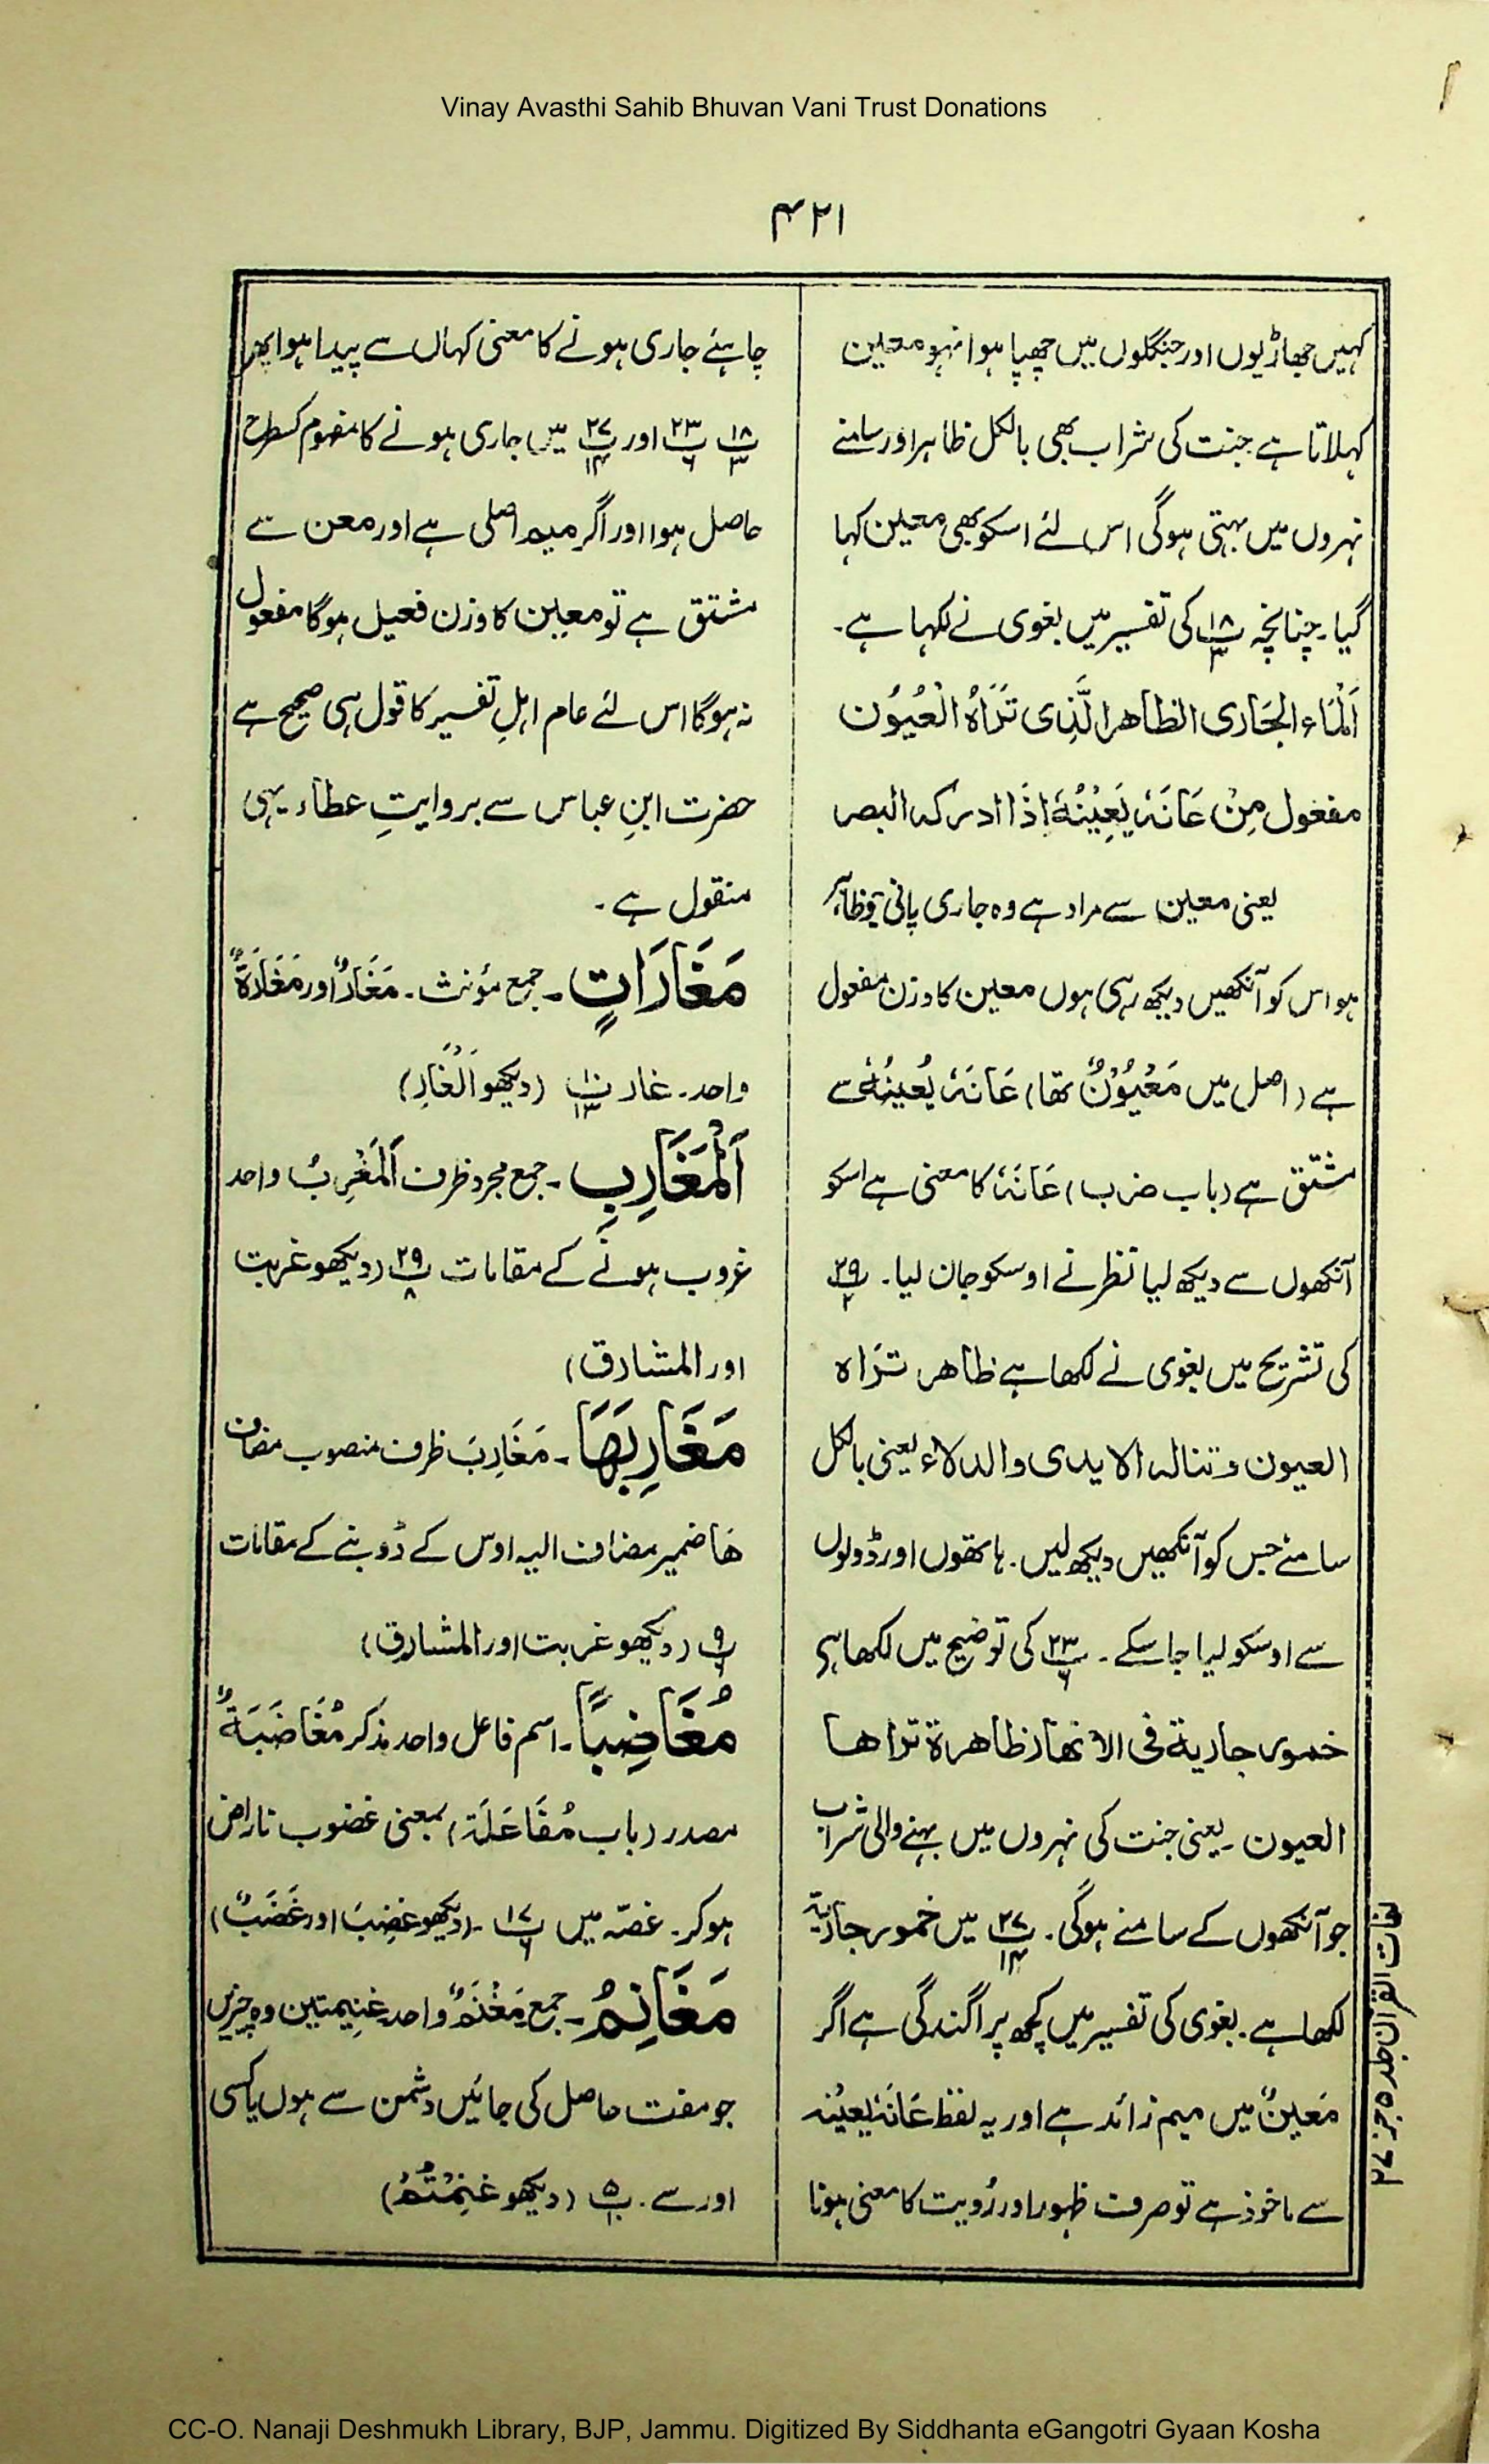 Vinay Avasthi Sahib Bhuvan Vani Trust Donations
۴۲۱
کہیں جھاڑیوں اور جنگلوں میں چھپا ہوا نہو معین
کہلاتا ہے جنت کی شراب بھی بالکل ظاہر اور سامنے
نہروں میں بہتی ہوگی اس لئے اسکو بھی معین کہا
گیا۔ چنانچہ پ۱۸/۳ کی تفسیر میں بغوی نے لکہا ہے۔
اَلْمَاء الجَاری الظاهر الَّذِی تَرَاہُ الْعُیُوْن
مفعول مِنْ عَانَہٗ یَعِیْنُہٗ اِذَا ادرکہ البصر
یعنی معین سے مراد ہے وہ جاری پانی جو ظاہر
ہو اس کو آنکھیں دیکھ رہی ہوں معین کا وزن مفعول
ہے (اصل میں مَعْیُوْنٌ تھا) عَانَہٗ یُعِینُہٗ سے
مشتق ہے (باب ضرب) عَانَہٗ کا معنی ہے اسکو
آنکھوں سے دیکھ لیا نظر نے اوسکو جان لیا۔ پ۲۹/۲
کی تشریح میں بغوی نے لکھا ہے ظاھر تَرَاہ
العیون و تنالہ الایدی والدلاء یعنی بالکل
سامنے جس کو آنکھیں دیکھ لیں۔ ہاتھوں اور ڈولوں
سے اوسکو لیا جا سکے۔ پ۲۳/۶ کی توضیح میں لکھا ہے
خمور جاریة فی الانھار ظاھرة تراھا
العیون۔ یعنی جنت کی نہروں میں بہنے والی شراب
جو آنکھوں کے سامنے ہوگی۔ پ۲۷/۱۴ میں خمور جاریة
لکھا ہے۔ بغوی کی تفسیر میں کچھ پراگندگی ہے اگر
مَعِینٌ میں میم زائد ہے اور یہ لفظ عَانَہٗ یَعِیْنُہ
سے ماخوذ ہے تو صرف ظہور اور رُویت کا معنی ہونا
چاہئے جاری ہونے کا معنی کہاں سے پیدا ہوا پھر
پ۱۸/۳ پ۲۳/۶ اور پ۲۷/۱۴ میں جاری ہونے کا مفہوم کسطرح
حاصل ہوا اور اگر میم اصلی ہے اور معن سے
مشتق ہے تو معین کا وزن فعیل ہوگا مفعول
نہ ہوگا اس لئے عام اہلِ تفسیر کا قول ہی صحیح ہے
حضرت ابنِ عباس سے بروایتِ عطاء یہی
منقول ہے۔
مَغَارَاتٍ۔ جمع مؤنث۔ مَغَارٌ اور مَغَارَةٌ
واحد۔ غار پ۱۰/۱۳ (دیکھو اَلْغَارِ)
اَلْمَغَارِبِ۔ جمع مجرد ظرف اَلْمَغْرِبُ واحد
غروب ہونے کے مقامات پ۲۹/۸ (دیکھو غربت
اور المشارق)
مَغَارِبَهَا۔ مَغَارِبَ ظرف منصوب مضاف
هَا ضمیر مضاف الیہ اوس کے ڈوبنے کے مقامات
پ۹/۶ (دیکھو غربت اور المشارق)
مُغَاضِبًا۔ اسم فاعل واحد مذکر مُغَاضَبَةٌ
مصدر (باب مُفَاعَلَة) بمعنی غضوب ناراض
ہوکر۔ غصّہ میں پ۱۷/۶۔ (دیکھو غضِبَ اور غَضَبٌ)
مَغَانِمُ۔ جمع مَغْنَمٌ واحد غنیمتین وہ چیزیں
جو مفت حاصل کی جائیں دشمن سے ہوں یا کسی
اور سے۔ پ۵/۱۰ (دیکھو غَنِمْتُمْ)
لغات القرآن جلد ۵ جز ۲۷
CC-O. Nanaji Deshmukh Library, BJP, Jammu. Digitized By Siddhanta eGangotri Gyaan Kosha